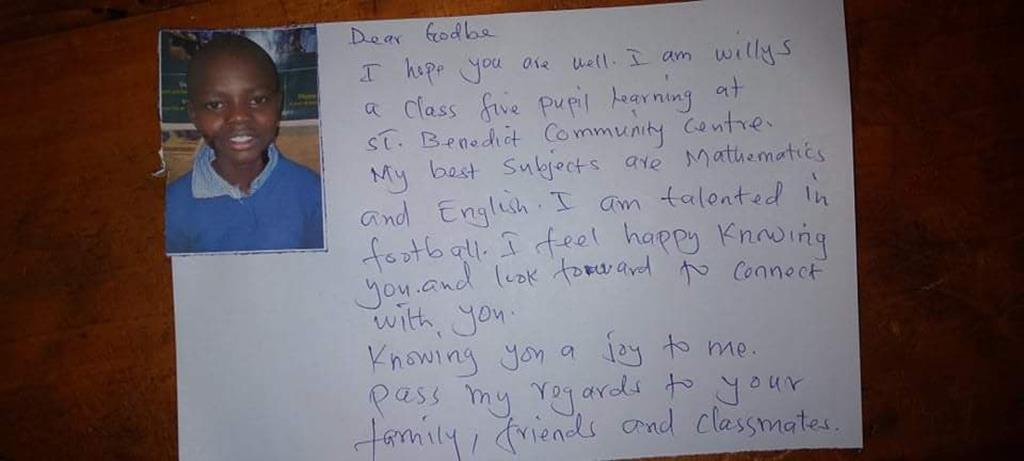 Dear Godbe
I hope you are well. I am willys
a class five pupil learning at
ST. Benedict Community Centre.
My best Subjects are Mathematics
and English. I am talented in
football. I feel happy Knowing
you.and look forward to connect
with, you.
Knowing you a joy to me.
Pass my regards to your
family, friends and classmates.